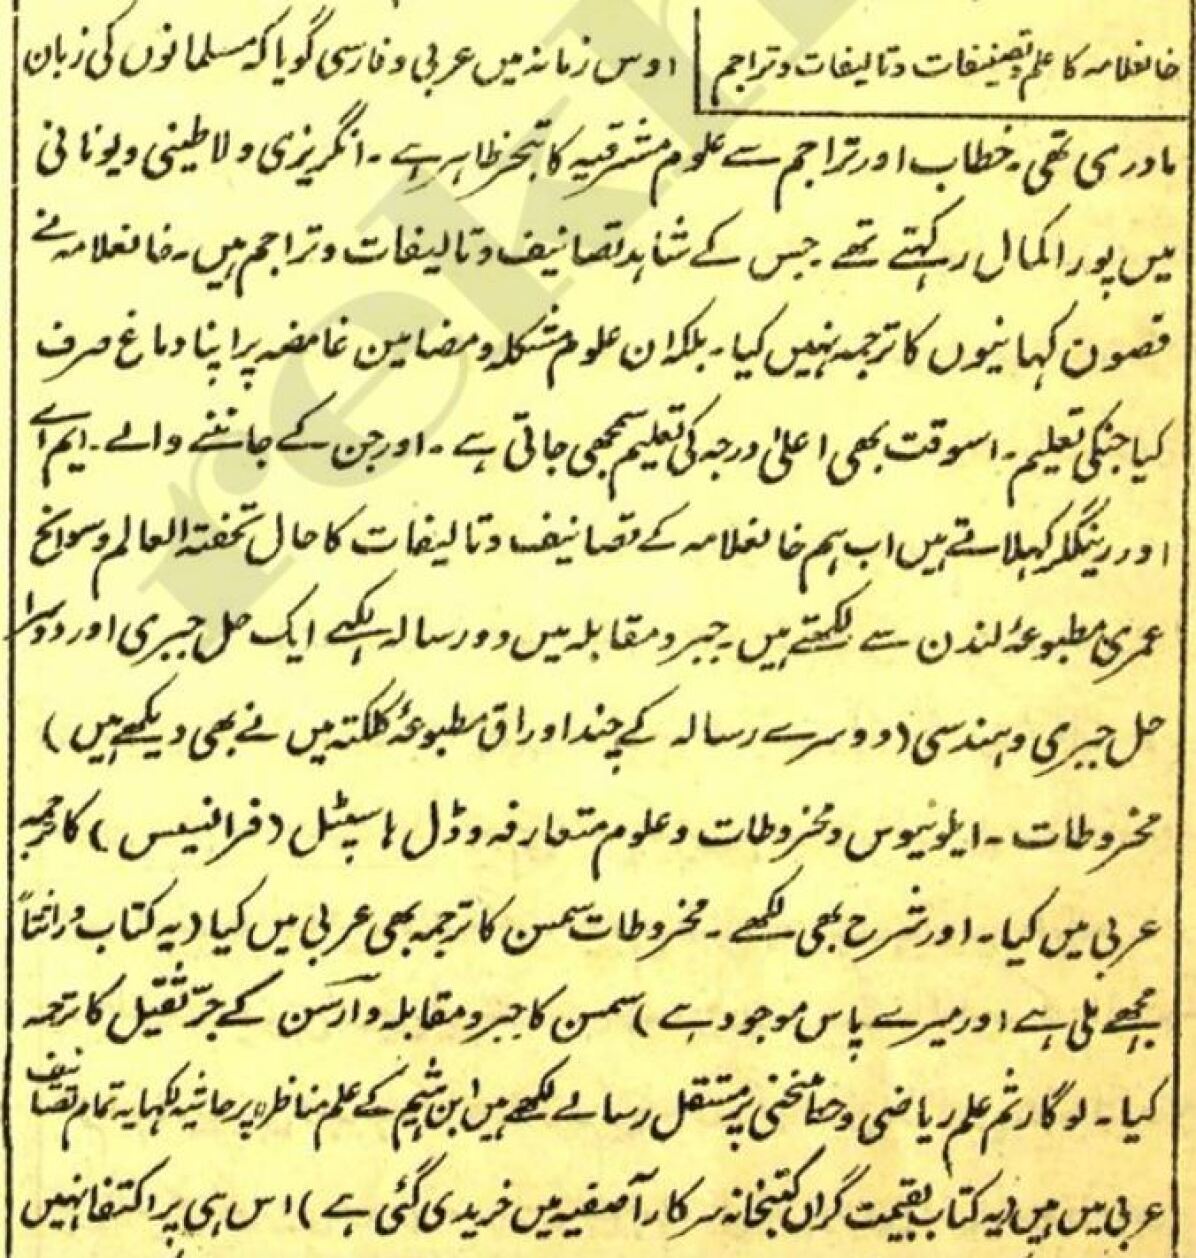 خانعلامہ کا علم و تصنیفات و تالیفات و تراجم
اوس زمانہ میں عربی و فارسی گویا کہ مسلمانوں کی زبان
مادری تھی۔ خطاب اور تراجم سے علوم مشرقیہ کا تبحر ظاہر ہے۔ انگریزی و لاطینی و یونانی
میں پورا کمال رکہتے تھے۔ جس کے شاہد تصانیف و تالیفات و تراجم ہیں۔ خانعلامہ نے
قصون کہانیوں کا ترجمہ نہیں کیا۔ بلکہ ان علوم مشکلہ و مضامین غامضہ پر اپنا دماغ صرف
کیا جنکی تعلیم۔ اسوقت بھی اعلیٰ درجہ کی تعلیم سمجھی جاتی ہے۔ اور جن کے جاننے والے۔ ایم اے
اور رینگلر کہلاتے ہیں اب ہم خانعلامہ کے تصانیف و تالیفات کا حال تحفتہ العالم و سوانح
عمری مطبوعۂ لندن سے لکھتے ہیں۔ جبر و مقابلہ میں دو رسالہ لکہے ایک حل جبری اور دوسرا
حل جبری و ہندسی (دوسرے رسالہ کے چند اوراق مطبوعۂ کلکتہ میں نے بھی دیکھے ہیں)
مخروطات۔ ایلونیوس و مخروطات و علوم متعارفہ و ڈل ہاسپٹل (فرانسیس) کا ترجمہ
عربی میں کیا۔ اور شرح بھی لکھے۔ مخروطات سمسن کا ترجمہ بھی عربی میں کیا (یہ کتاب وراثتاً
مجھے ملی ہے اور میرے پاس موجود ہے) سمسن کا جبر و مقابلہ و آرسن کے جرّ ثقیل کا ترجمہ
کیا۔ لوگارثم علم ریاضی و منحنی پر مستقل رسالے لکھے ہیں ابن ہثیم کے علم مناظرہ پر حاشیہ لکہا یہ تمام تصانیف
عربی میں ہیں (یہ کتاب بقیمت گراں کتبخانہ سرکار آصفیہ میں خریدی گئی ہے) اس ہی پر اکتفا نہیں
rekh